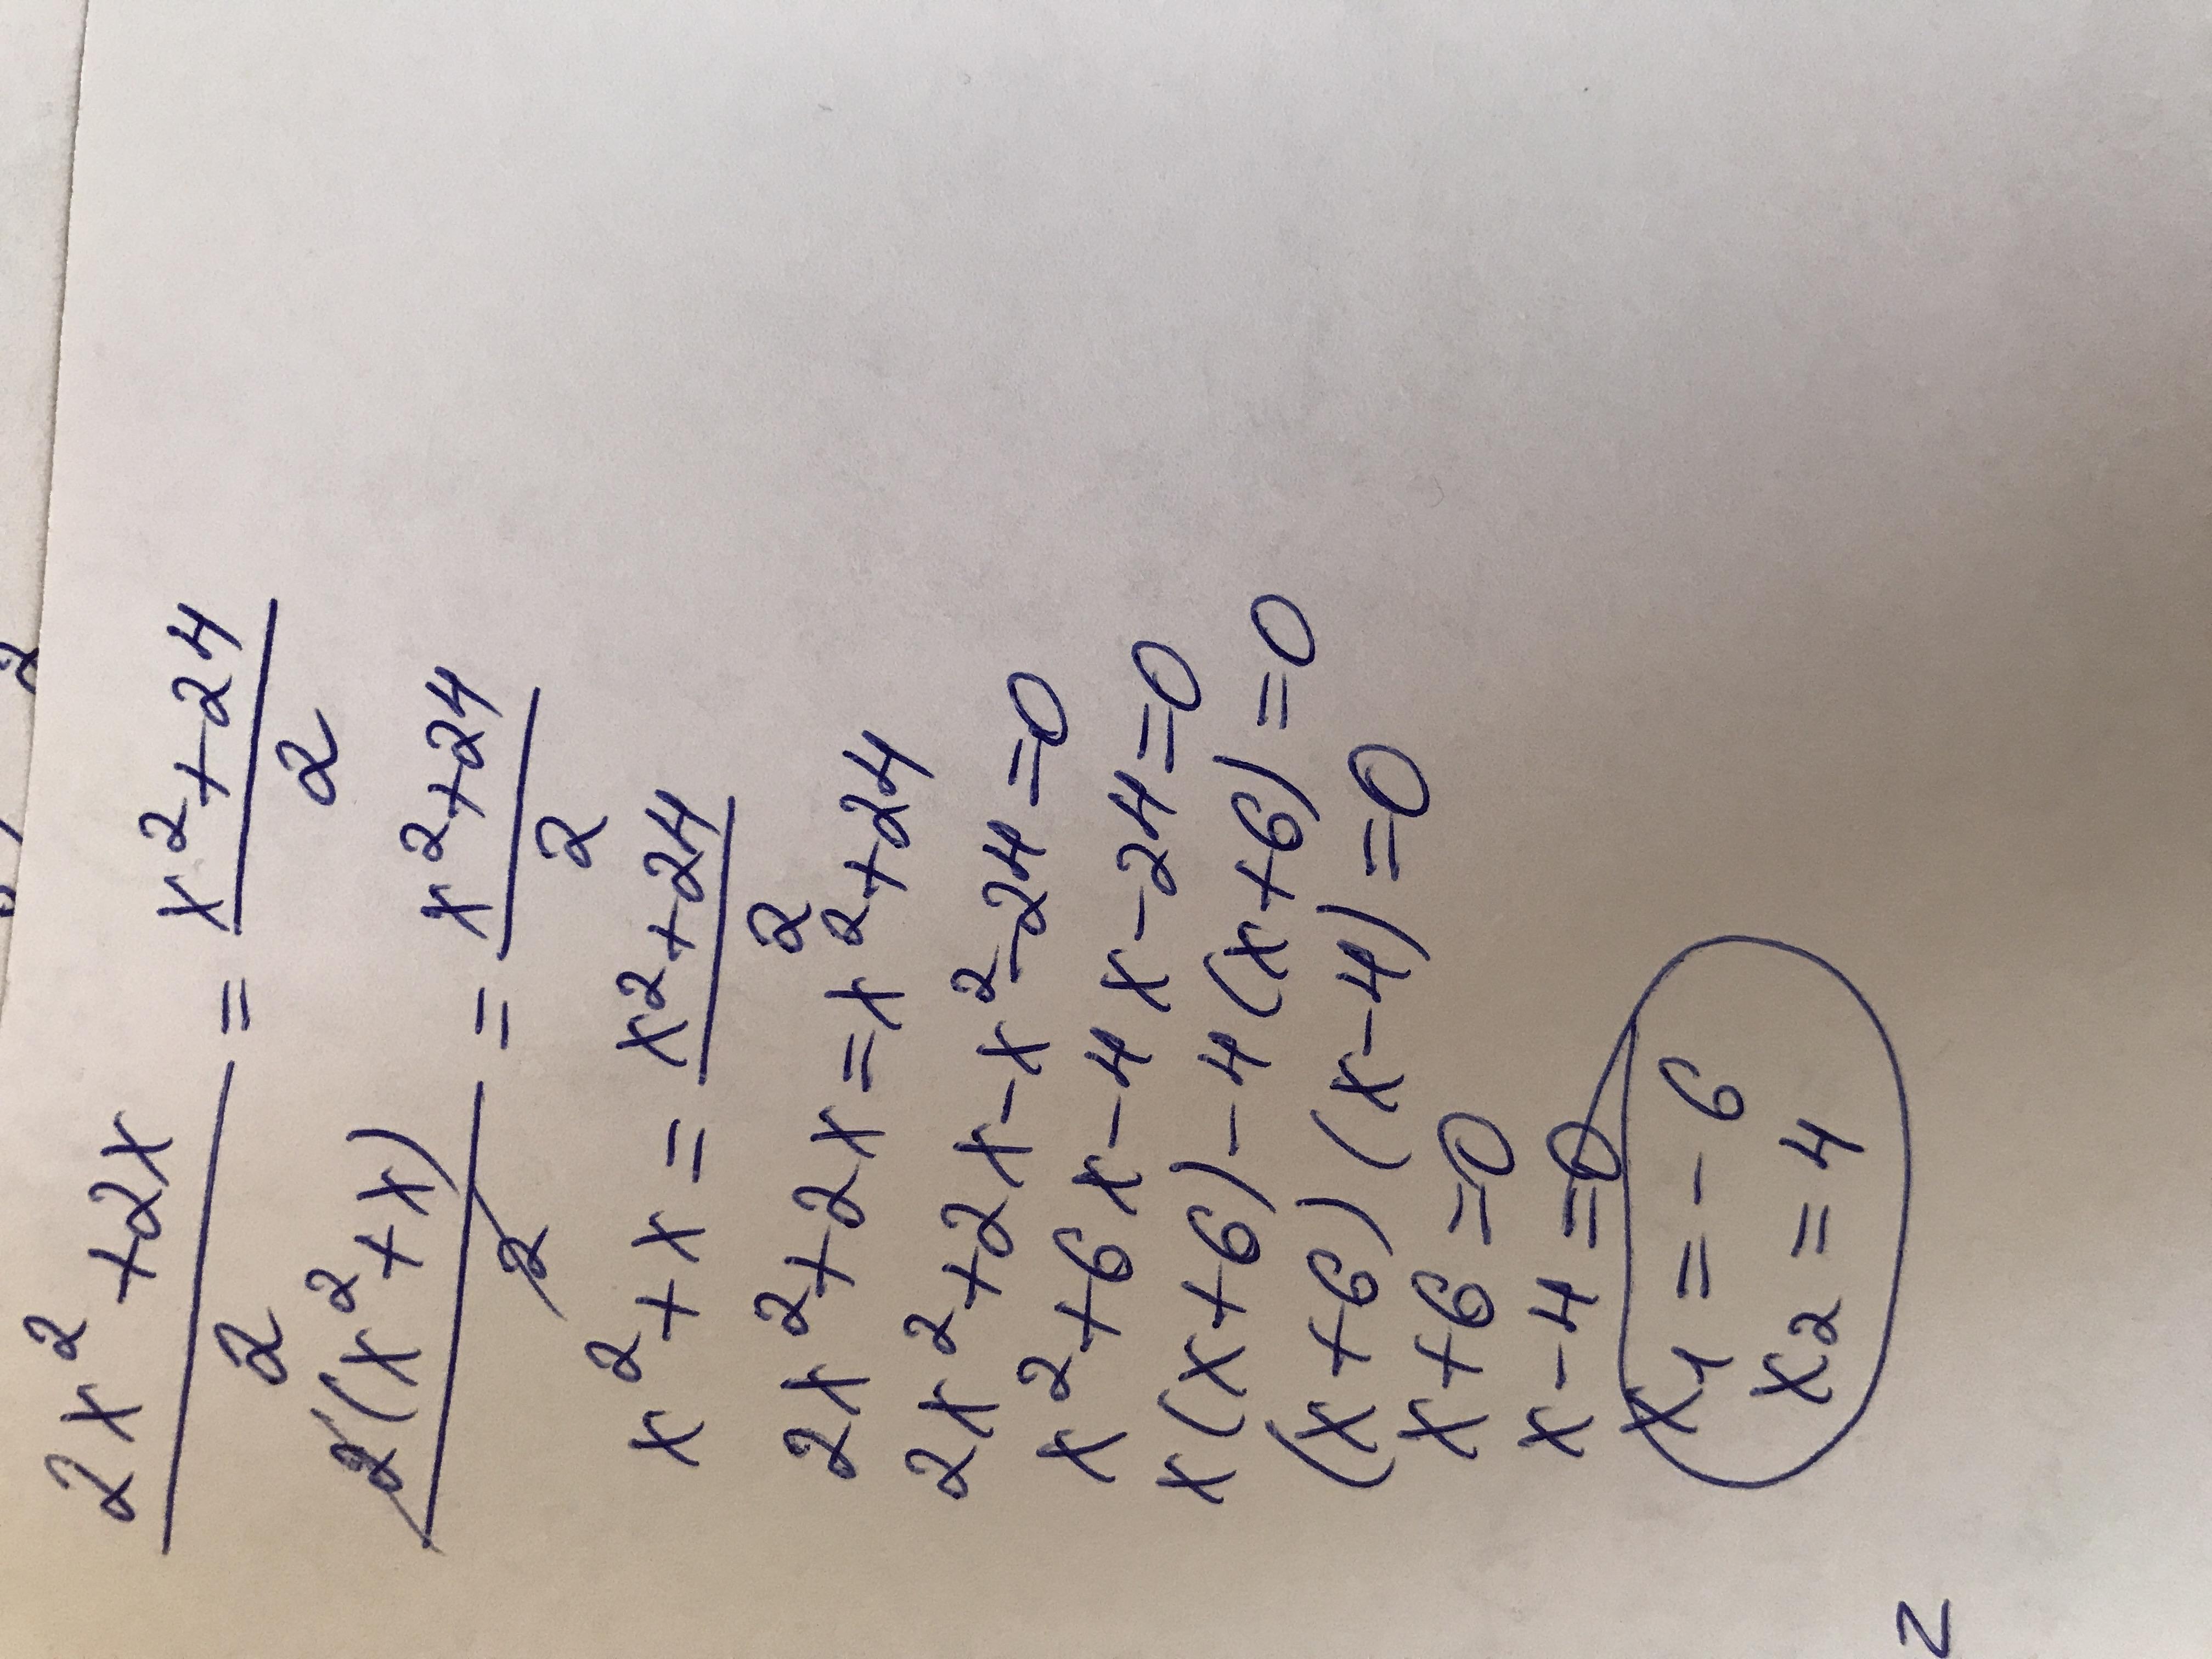 2x² + 2x / 2 = x² + 24 / 2
2(x² + x) / 2 = x² + 24 / 2
x² + x = x² + 24 / 2
2x² + 2x = x² + 24
2x² + 2x - x² - 24 = 0
x² + 6x - 4x - 24 = 0
x(x + 6) - 4(x + 6) = 0
(x + 6)(x - 4) = 0
x + 6 = 0
x - 4 = 0
x₁ = -6
x₂ = 4